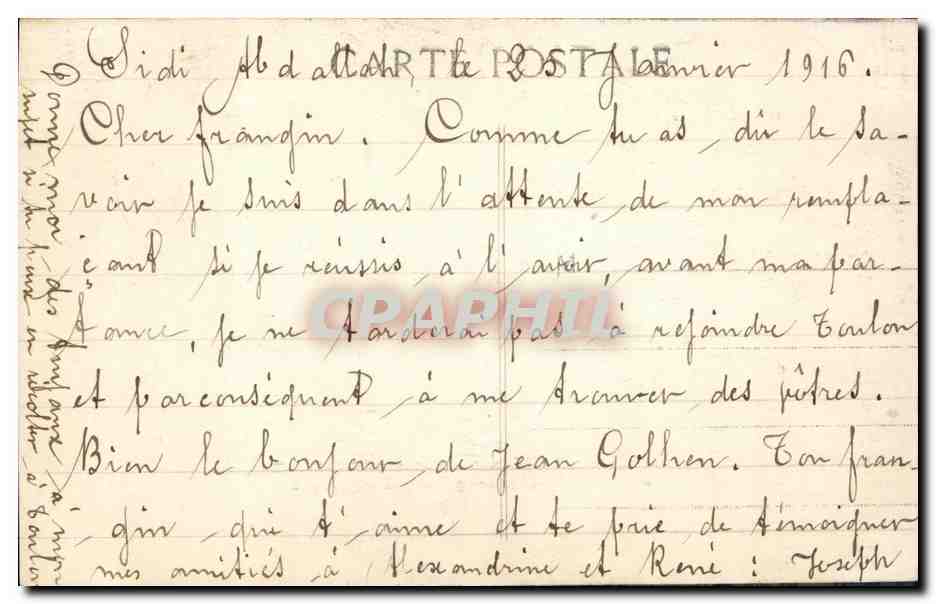 CARTE POSTALE
Sidi Abdallah, le 25 Janvier 1916.
Cher frangin. Comme tu as dû le sa-
voir je suis dans l'attente de mon rempla-
çant si je réussis à l'avoir, avant ma par-
tance, je ne tarderai pas à rejoindre Toulon
et parconséquent à me trouver des vôtres.
Bien le bonjour de Jean Golhen. Ton fran-
gin qui t'aime et te prie de témoigner
mes amitiés à Alexandrine et René : Joseph
Donne moi des tuyaux à mon
sujet si tu peux en récolter à Toulon
CPAPHIL